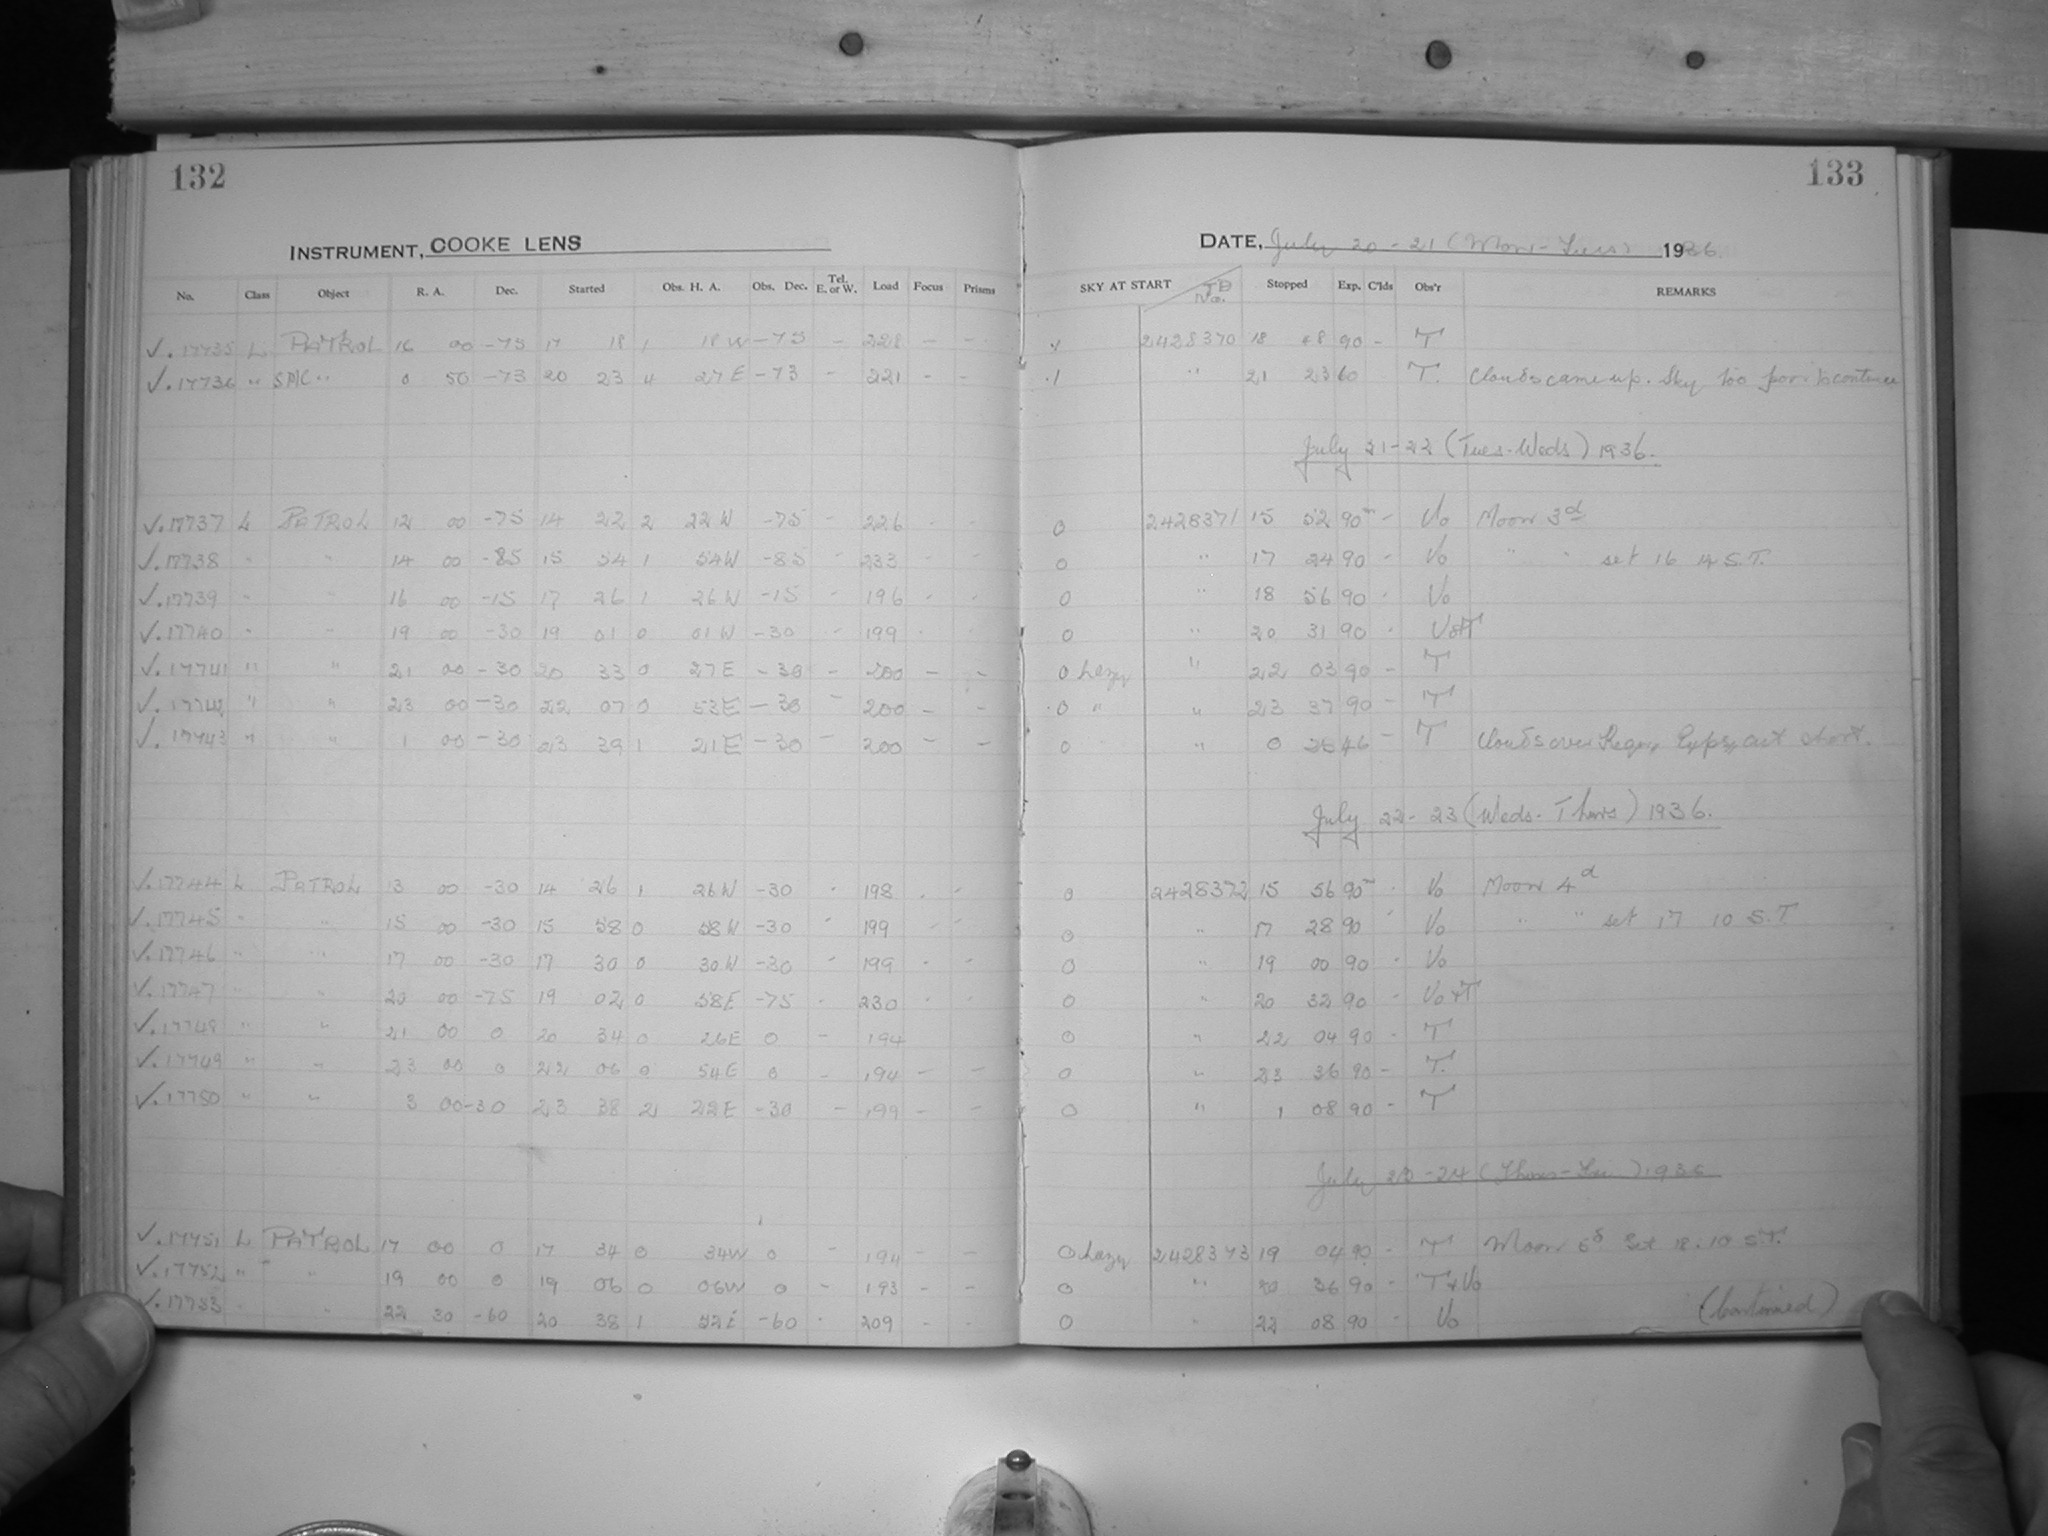 132
INSTRUMENT, COOKE LENS
No. Class Object R. A. Dec. Started Obs. H. A. Obs. Dec. Tel. E. or W. Load Focus Prisms
✓. 17735 L PATROL 16 00 -75 17 18 1 18 W -75 - 228 - -
✓. 17736 " SMC " 0 50 -73 20 23 4 27 E -73 - 221 - -
✓. 17737 L PATROL 12 00 -75 14 22 2 22 W -75 - 226 - -
✓. 17738 " " 14 00 -85 15 54 1 54 W -85 - 233 - -
✓. 17739 " " 16 00 -15 17 26 1 26 W -15 - 196 - -
✓. 17740 " " 19 00 -30 19 01 0 01 W -30 - 199 - -
✓. 17741 " " 21 00 -30 20 33 0 27 E -30 - 200 - -
✓. 17742 " " 23 00 -30 22 07 0 53 E -30 - 200 - -
✓. 17743 " " 1 00 -30 23 39 1 21 E -30 - 200 - -
✓. 17744 L PATROL 13 00 -30 14 26 1 26 W -30 - 198 - -
✓. 17745 " " 15 00 -30 15 58 0 58 W -30 - 199 - -
✓. 17746 " " 17 00 -30 17 30 0 30 W -30 - 199 - -
✓. 17747 " " 20 00 -75 19 02 0 58 E -75 - 230 - -
✓. 17748 " " 21 00 0 20 34 0 26 E 0 - 194
✓. 17749 " " 23 00 0 22 06 0 54 E 0 - 194 - -
✓. 17750 " " 3 00 -30 23 38 2 22 E -30 - 199 - -
✓. 17751 L PATROL 17 00 0 17 34 0 34 W 0 194 - -
✓. 17752 " " 19 00 0 19 06 0 06 W 0 - 193 - -
✓. 17753 " " 22 30 -60 20 38 1 52 E -60 - 209 - -
133
DATE, July 20 - 21 (Mon - Tues) 1936.
SKY AT START JD No. Stopped Exp. C'lds Obs'r REMARKS
2428370 18 48 90 - T
.1 " 21 23 60 T. Clouds came up. Sky too poor to continue
July 21-22 (Tues-Weds) 1936.
0 2428371 15 52 90m - Vo Moon 3d
0 " 17 24 90 - Vo " " set 16 14 S.T.
0 " 18 56 90 - Vo
0 " 20 31 90 - Vo+T
0 hazy " 22 03 90 - T
0 " " 23 37 90 - T
0 " 0 25 46 - T Clouds over Region Expos. cut short.
July 22-23 (Weds-Thurs) 1936.
0 2428372 15 56 90m - Vo Moon 4d
0 " 17 28 90 - Vo " " set 17 10 S.T
0 " 19 00 90 - Vo
0 " 20 32 90 - Vo+T
0 " 22 04 90 - T
0 " 23 36 90 - T.
0 " 1 08 90 - T
July 23-24 (Thurs-Fri) 1936
0 hazy 2428373 19 04 90 - T Moon Set 18.10 S.T.
0 " 20 36 90 - T+Vo
0 " 22 08 90 - Vo
(Continued)